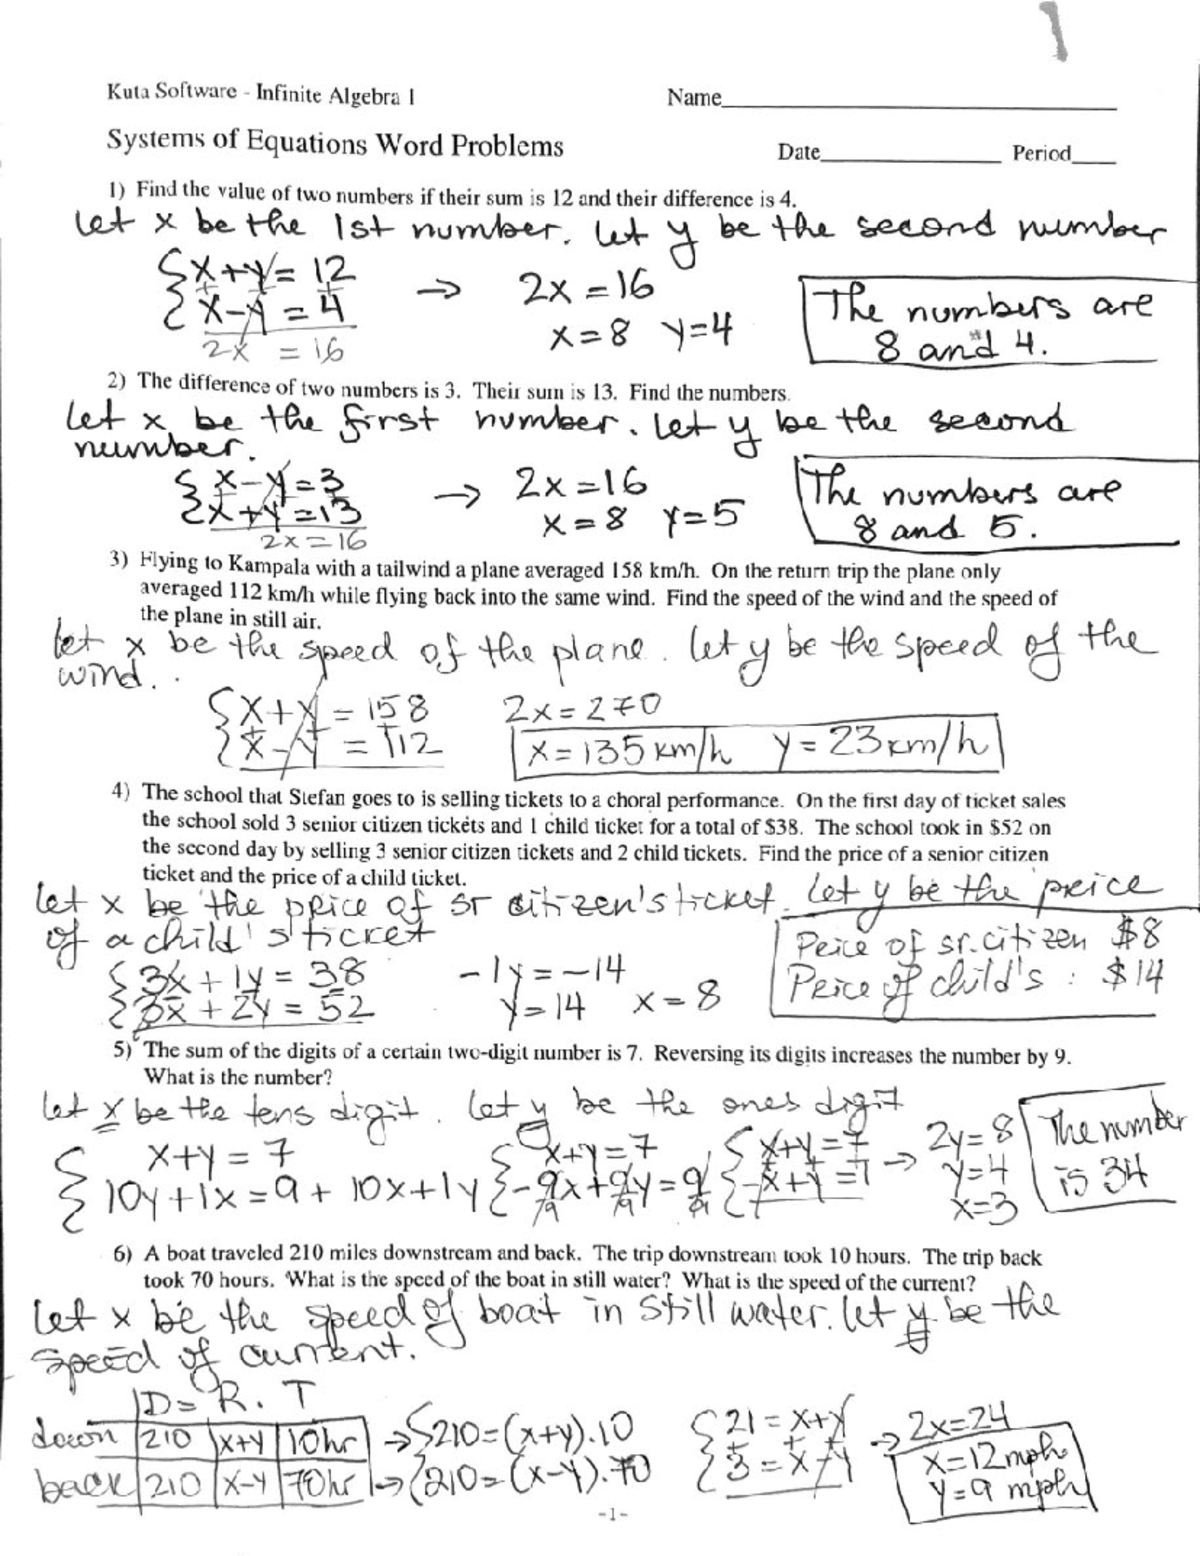 1
Kuta Software - Infinite Algebra 1 Name
Systems of Equations Word Problems Date Period
1) Find the value of two numbers if their sum is 12 and their difference is 4.
Let x be the 1st number. Let y be the second number
{x+y=12 → 2x=16 The numbers are
{x-y=4 x=8 y=4 8 and 4.
2x = 16
2) The difference of two numbers is 3. Their sum is 13. Find the numbers.
Let x be the first number. Let y be the second
number.
{x-y=3 → 2x=16 The numbers are
{x+y=13 x=8 y=5 8 and 5.
2x=16
3) Flying to Kampala with a tailwind a plane averaged 158 km/h. On the return trip the plane only
averaged 112 km/h while flying back into the same wind. Find the speed of the wind and the speed of
the plane in still air.
let x be the speed of the plane. let y be the speed of the
wind.
{x+y=158 2x=270
{x-y=112 x=135 km/h y=23 km/h
4) The school that Stefan goes to is selling tickets to a choral performance. On the first day of ticket sales
the school sold 3 senior citizen tickets and 1 child ticket for a total of $38. The school took in $52 on
the second day by selling 3 senior citizen tickets and 2 child tickets. Find the price of a senior citizen
ticket and the price of a child ticket.
let x be the price of sr citizen's ticket. let y be the price
of a child's ticket Price of sr. citizen $8
{3x+1y=38 -1y=-14 Price of child's : $14
{3x+2y=52 y=14 x=8
5) The sum of the digits of a certain two-digit number is 7. Reversing its digits increases the number by 9.
What is the number?
let x be the tens digit. Let y be the ones digit
{x+y=7 {x+y=7 {x+y=7 → 2y=8 The number
{10y+1x=9+10x+1y {-9x+9y=9 {-x+y=1 y=4 is 34
9 9 9 x=3
6) A boat traveled 210 miles downstream and back. The trip downstream took 10 hours. The trip back
took 70 hours. What is the speed of the boat in still water? What is the speed of the current?
Let x be the speed of boat in still water. let y be the
speed of current.
D = R. T
down 210 x+y 10hr → {210=(x+y).10 {21=x+y → 2x=24
back 210 x-y 70hr → {210=(x-y).70 {3=x-y x=12mph
y=9 mph
-1-